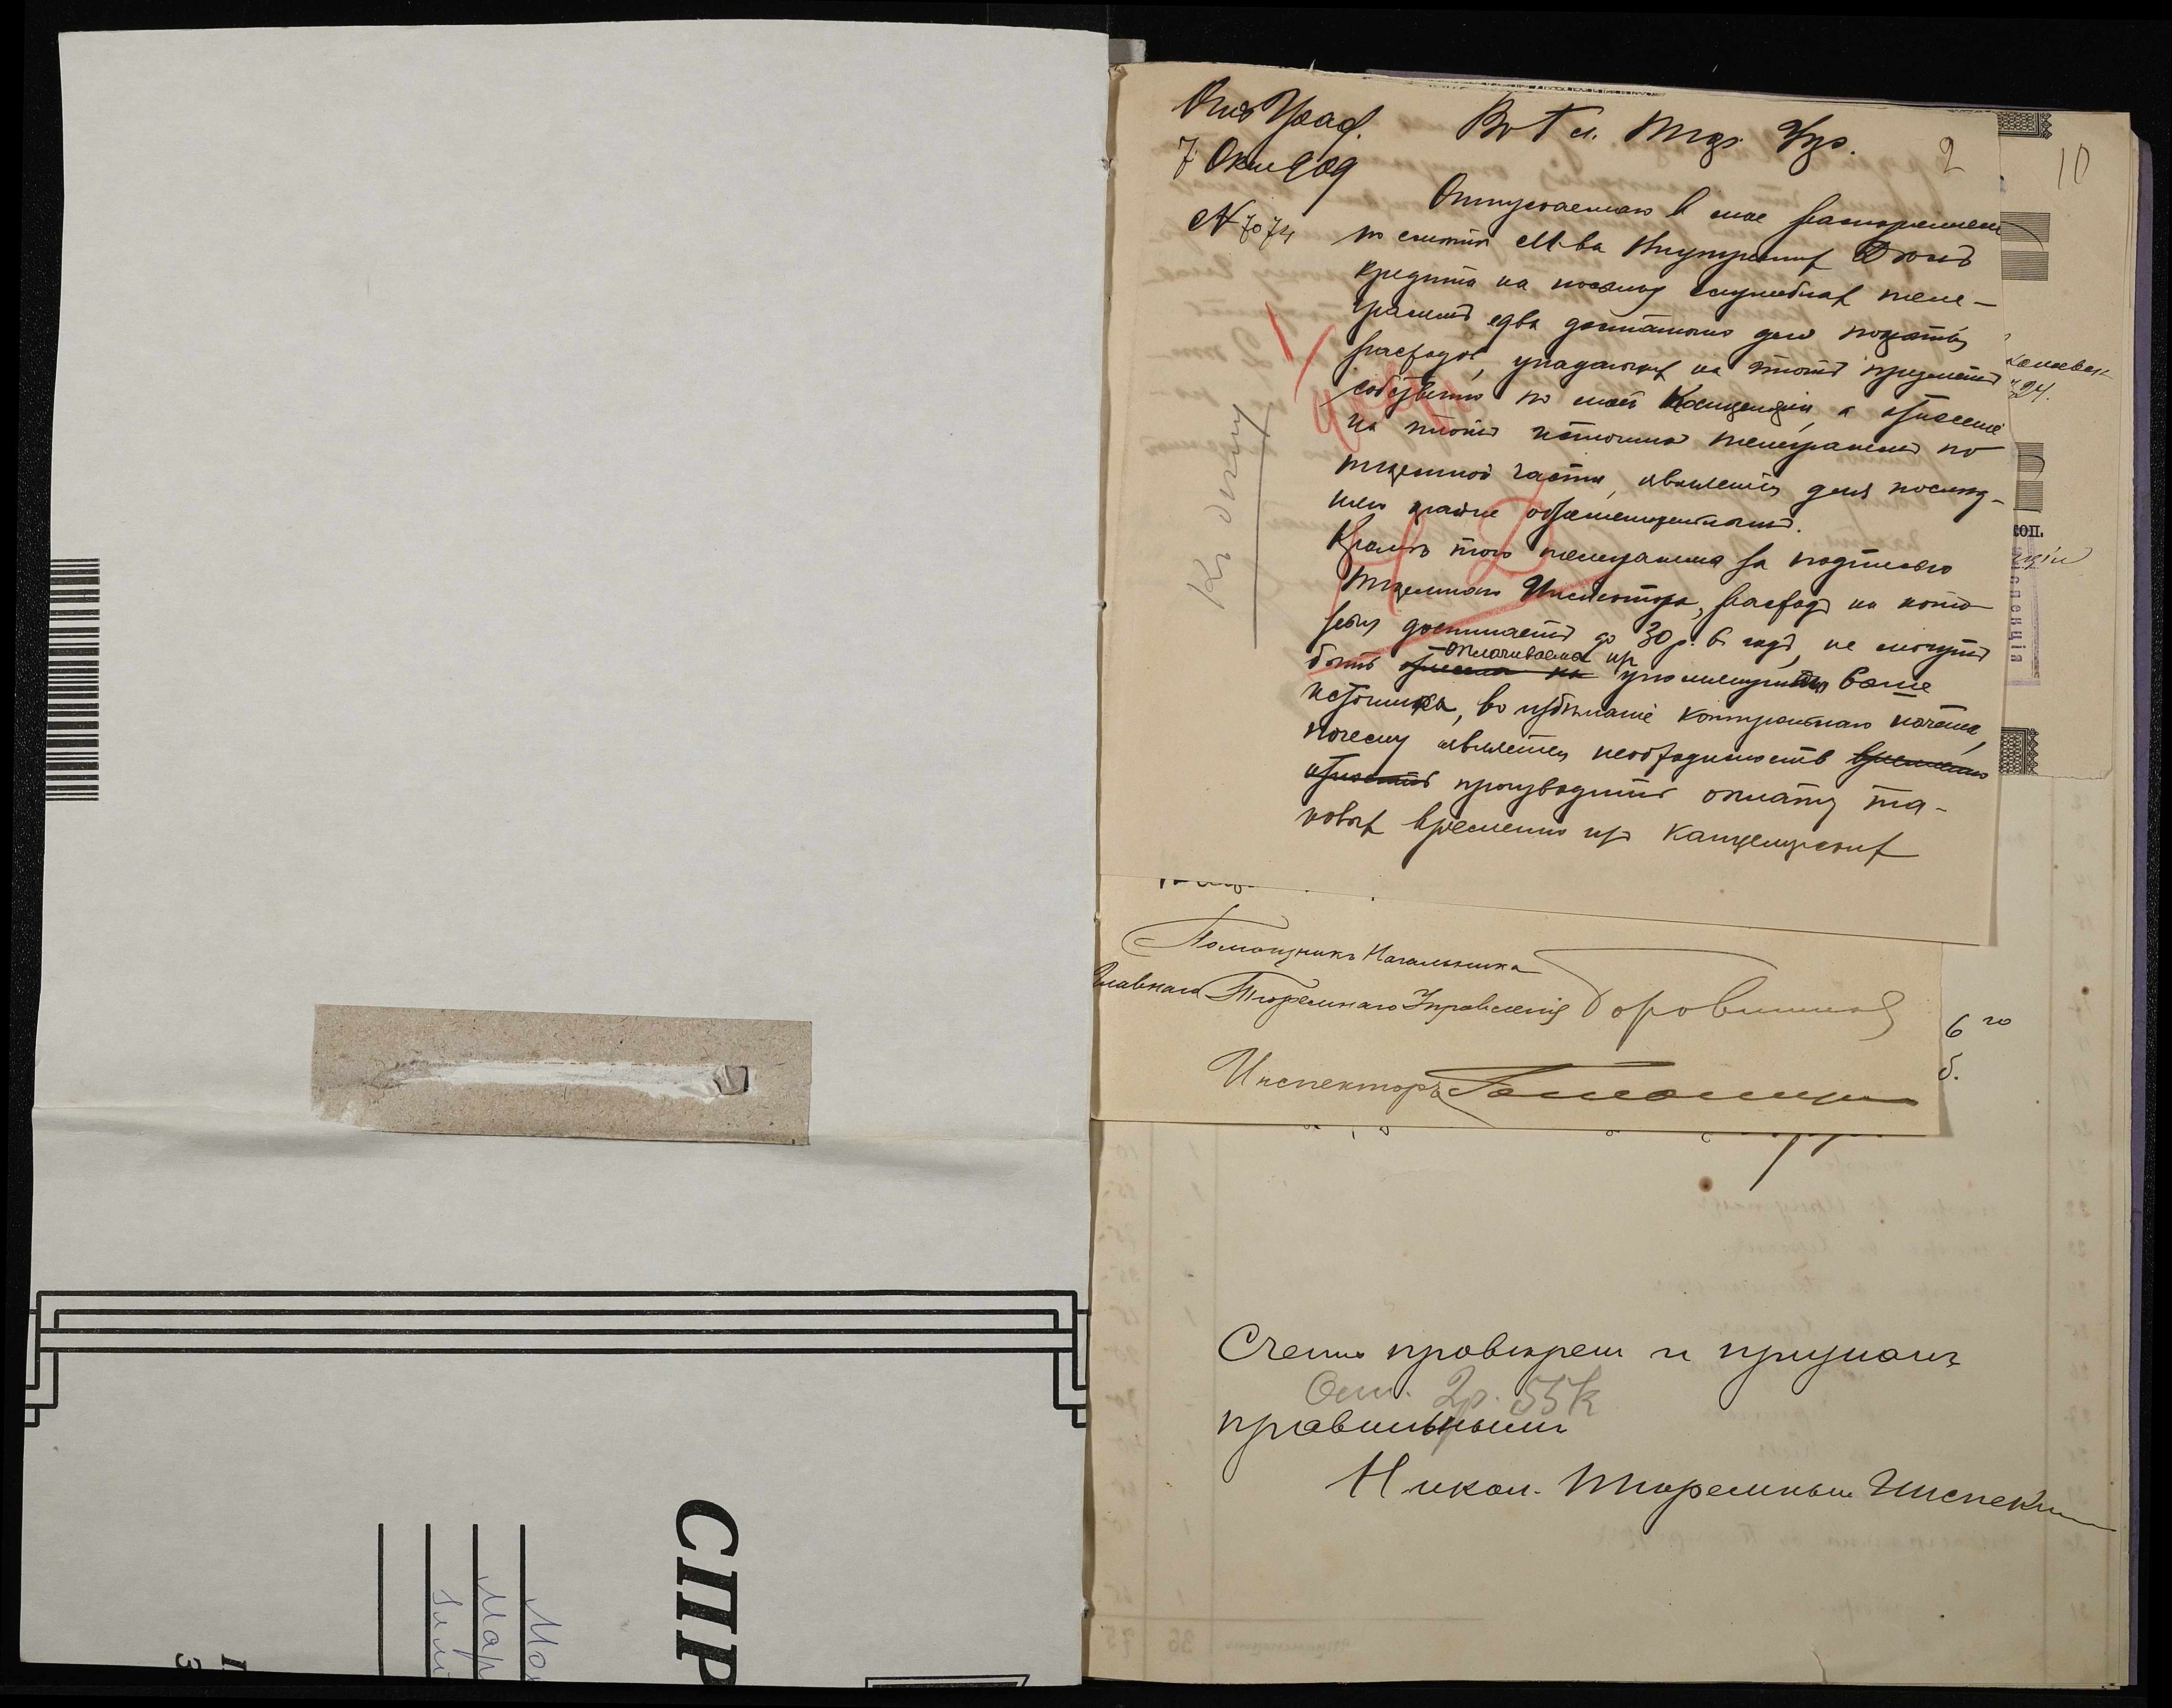 7 Окт 909
№ 7074
Въ Гл. Тюр. Упр.
2
10
Отпускаемаго в мое распоряжен
по смете М-ва Внутренних Делъ
кредита на посылку служебных теле-
граммъ едва достаточно для покрытiя
расходов, упадающих на этотъ предметъ
собственно по моей Канцелярiи, а отнесенiе
на этотъ источникъ телеграммъ по
тюремной части, является для послед-
няго крайне обременительнымъ.
Кроме того телеграммы за подписью
Тюремнаго Инспектора, расходъ на кото-
рыя достигаетъ до 30 р. в годъ, не могутъ
оплачиваемы из
быть отнесены на упомянутаго выше
источника, во избежанiе контрольнаго начета,
почему является необходимость временно
относить производить оплату та-
ковых временно изъ канцелярских
Къ делу
коп.
Помощникъ Начальника
Главнаго Тюремнаго Управленiя
Инспекторъ
6 го
Счетъ проверен и признанъ
Ост. 2р. 55к
правильнымъ
Никол. Тюремный Инспек
СПР
Мар